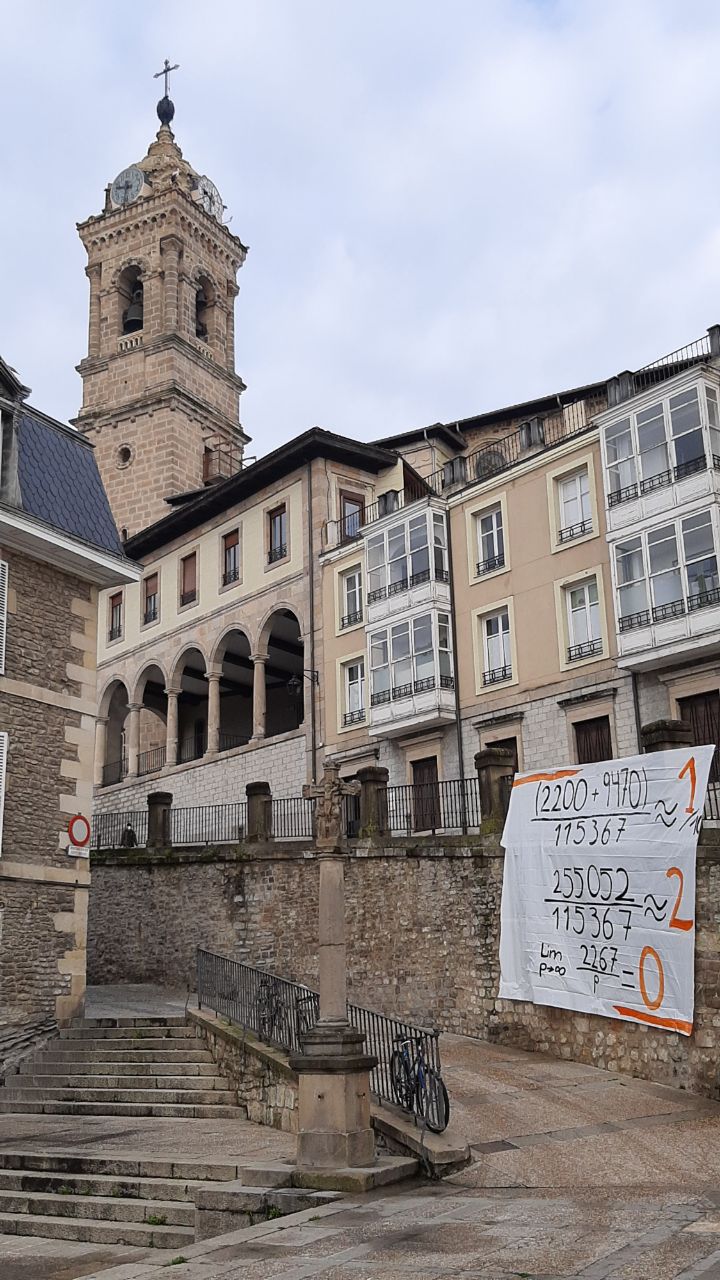 (2200+9470)
115367
≈ 1/10
255052
115367
≈ 2
Lim p→∞ 2267/p = 0